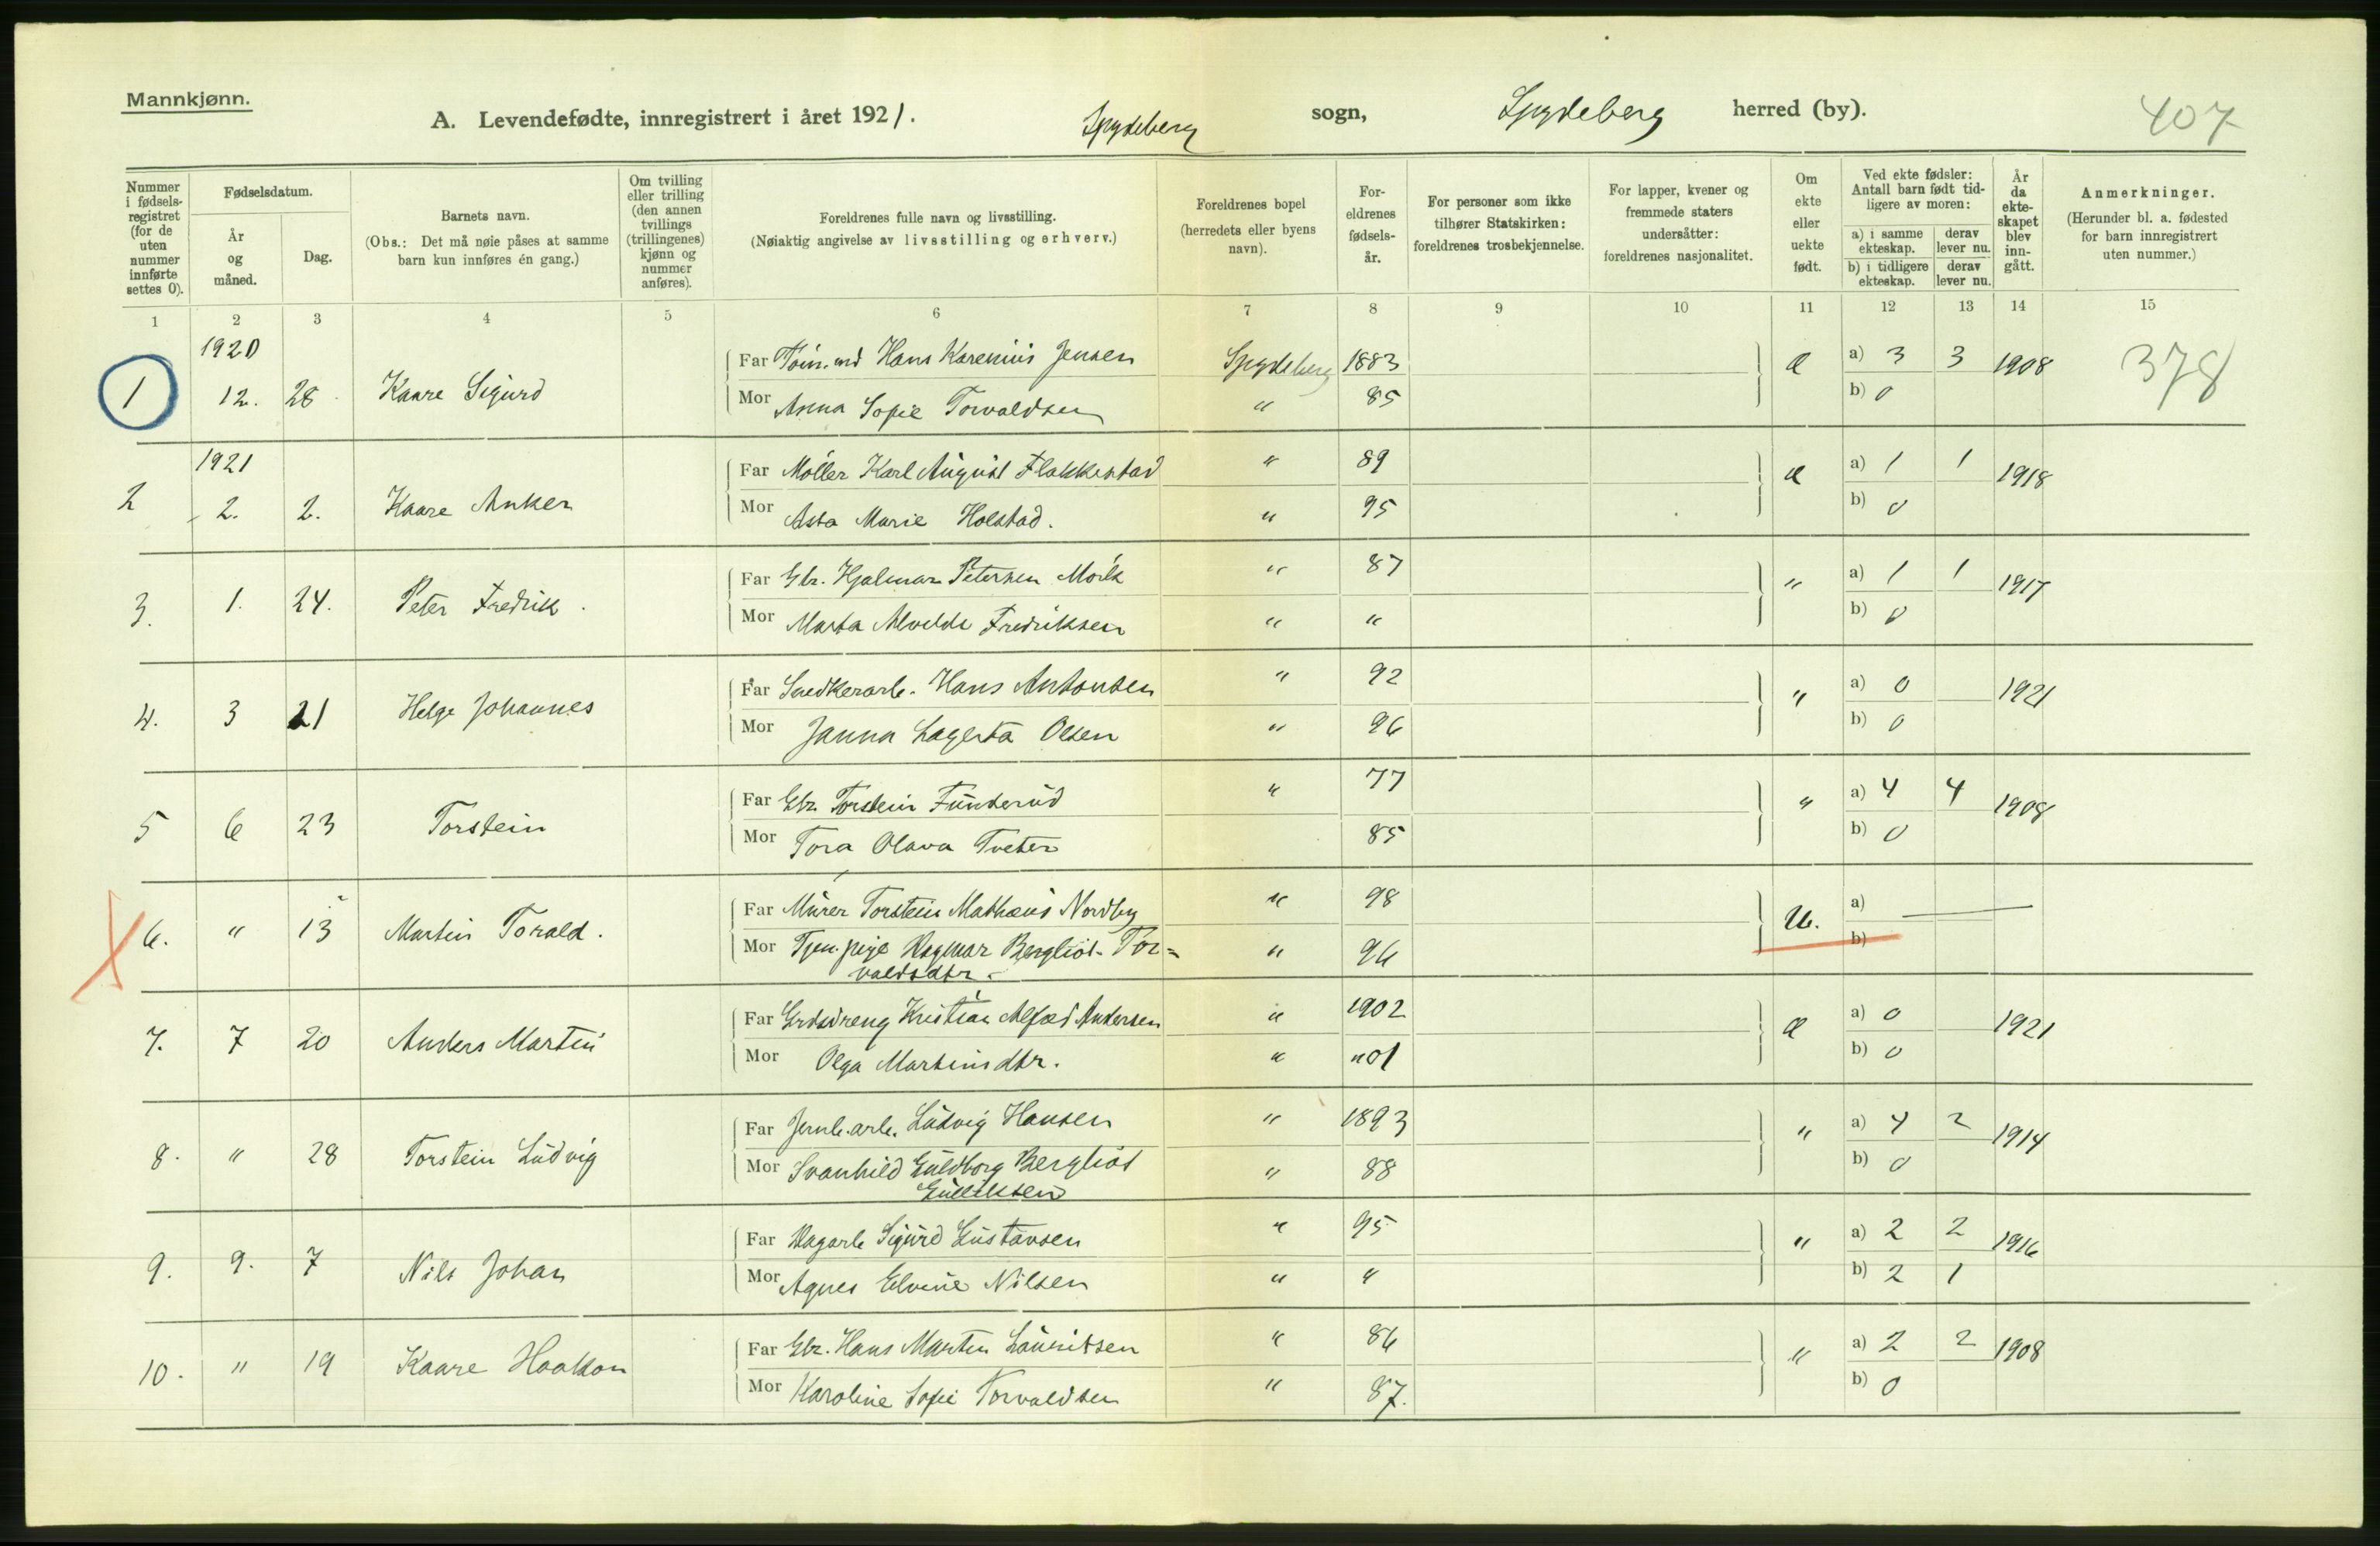 Mannkjønn.
A. Levendefødte, innregistrert i året 1921. Spydeberg sogn, Spydeberg herred (by). 407
Nummer i fødsels-registret (for de uten nummer innførte settes 0).
Fødselsdatum.
År og måned.
Dag.
Barnets navn.
(Obs.: Det må nøie påses at samme barn kun innføres én gang.)
Om tvilling eller trilling (den annen tvillings (trillingenes) kjønn og nummer anføres).
Foreldrenes fulle navn og livsstilling.
(Nøiaktig angivelse av livsstilling og erhverv.)
Foreldrenes bopel (herredets eller byens navn).
For-eldrenes fødsels-år.
For personer som ikke tilhører Statskirken: foreldrenes trosbekjennelse.
For lapper, kvener og fremmede staters undersåtter: foreldrenes nasjonalitet.
Om ekte eller uekte født.
Ved ekte fødsler: Antall barn født tid-ligere av moren:
a) i samme ekteskap. derav lever nu.
b) i tidligere ekteskap. derav lever nu.
År da ekte-skapet blev inn-gått.
Anmerkninger.
(Herunder bl. a. fødested for barn innregistrert uten nummer.)
1 2 3 4 5 6 7 8 9 10 11 12 13 14 15
1920
Far Hans Karenius Jensen Spydeberg 1883 a) 3 3 1908 378
1 12. 28 Kaare Sigurd
Mor Anna Sofie Torvaldsen " 85 b) 0
1921
Far Møller Karl August Flakkestad " 89 a) 1 1 1918
2 2. 2. Kaare Anker
Mor Asta Marie Holstad. " 95 b) 0
Far Gbr. Hjalmar Petersen Mørk " 87 " a) 1 1 1917
3. 1. 24. Peter Fredrik
Mor Marta Alvilde Fredriksen " " b) 0
Far Snedkerarb. Hans Antonsen " 92 " a) 0 1921
4. 3 21 Helge Johannes
Mor Janna Lagerta Olsen " 96 b) 0
Far Gbr. Torstein Funterud " 77 " a) 4 4 1908
5 6 23 Torstein
Mor Tora Olava Tveter 85 b) 0
Far Murer Torstein Mathæus Nordby " 98 U. a)
6. " 13 Martin Torald.
Mor Tjen.pige Dagmar Bergliot Tor= " 96 b)
valdsdtr.
Far Grdsdreng Kristian Alfred Andersen " 1902 a) 0 1921
7. 7 20 Anders Martin
Mor Olga Martinsdtr. " "01 b) 0
Far Jernb.arb. Ludvig Hansen " 1893 " a) 4 2 1914
8. " 28 Torstein Ludvig
Mor Svanhild Guldborg Bergliot " 88 b) 0
Gulliksen
Far Dagarb Sigurd Gustavsen " 95 " a) 2 2 1916
9. 9. 7 Nils Johan
Mor Agnes Elvine Nilsen " " b) 2 1
Far Gbr. Hans Martin Lauritsen " 86 " a) 2 2 1908
10. " 19 Kaare Haakon
Mor Karoline Sofie Torvaldsen " 87. b) 0